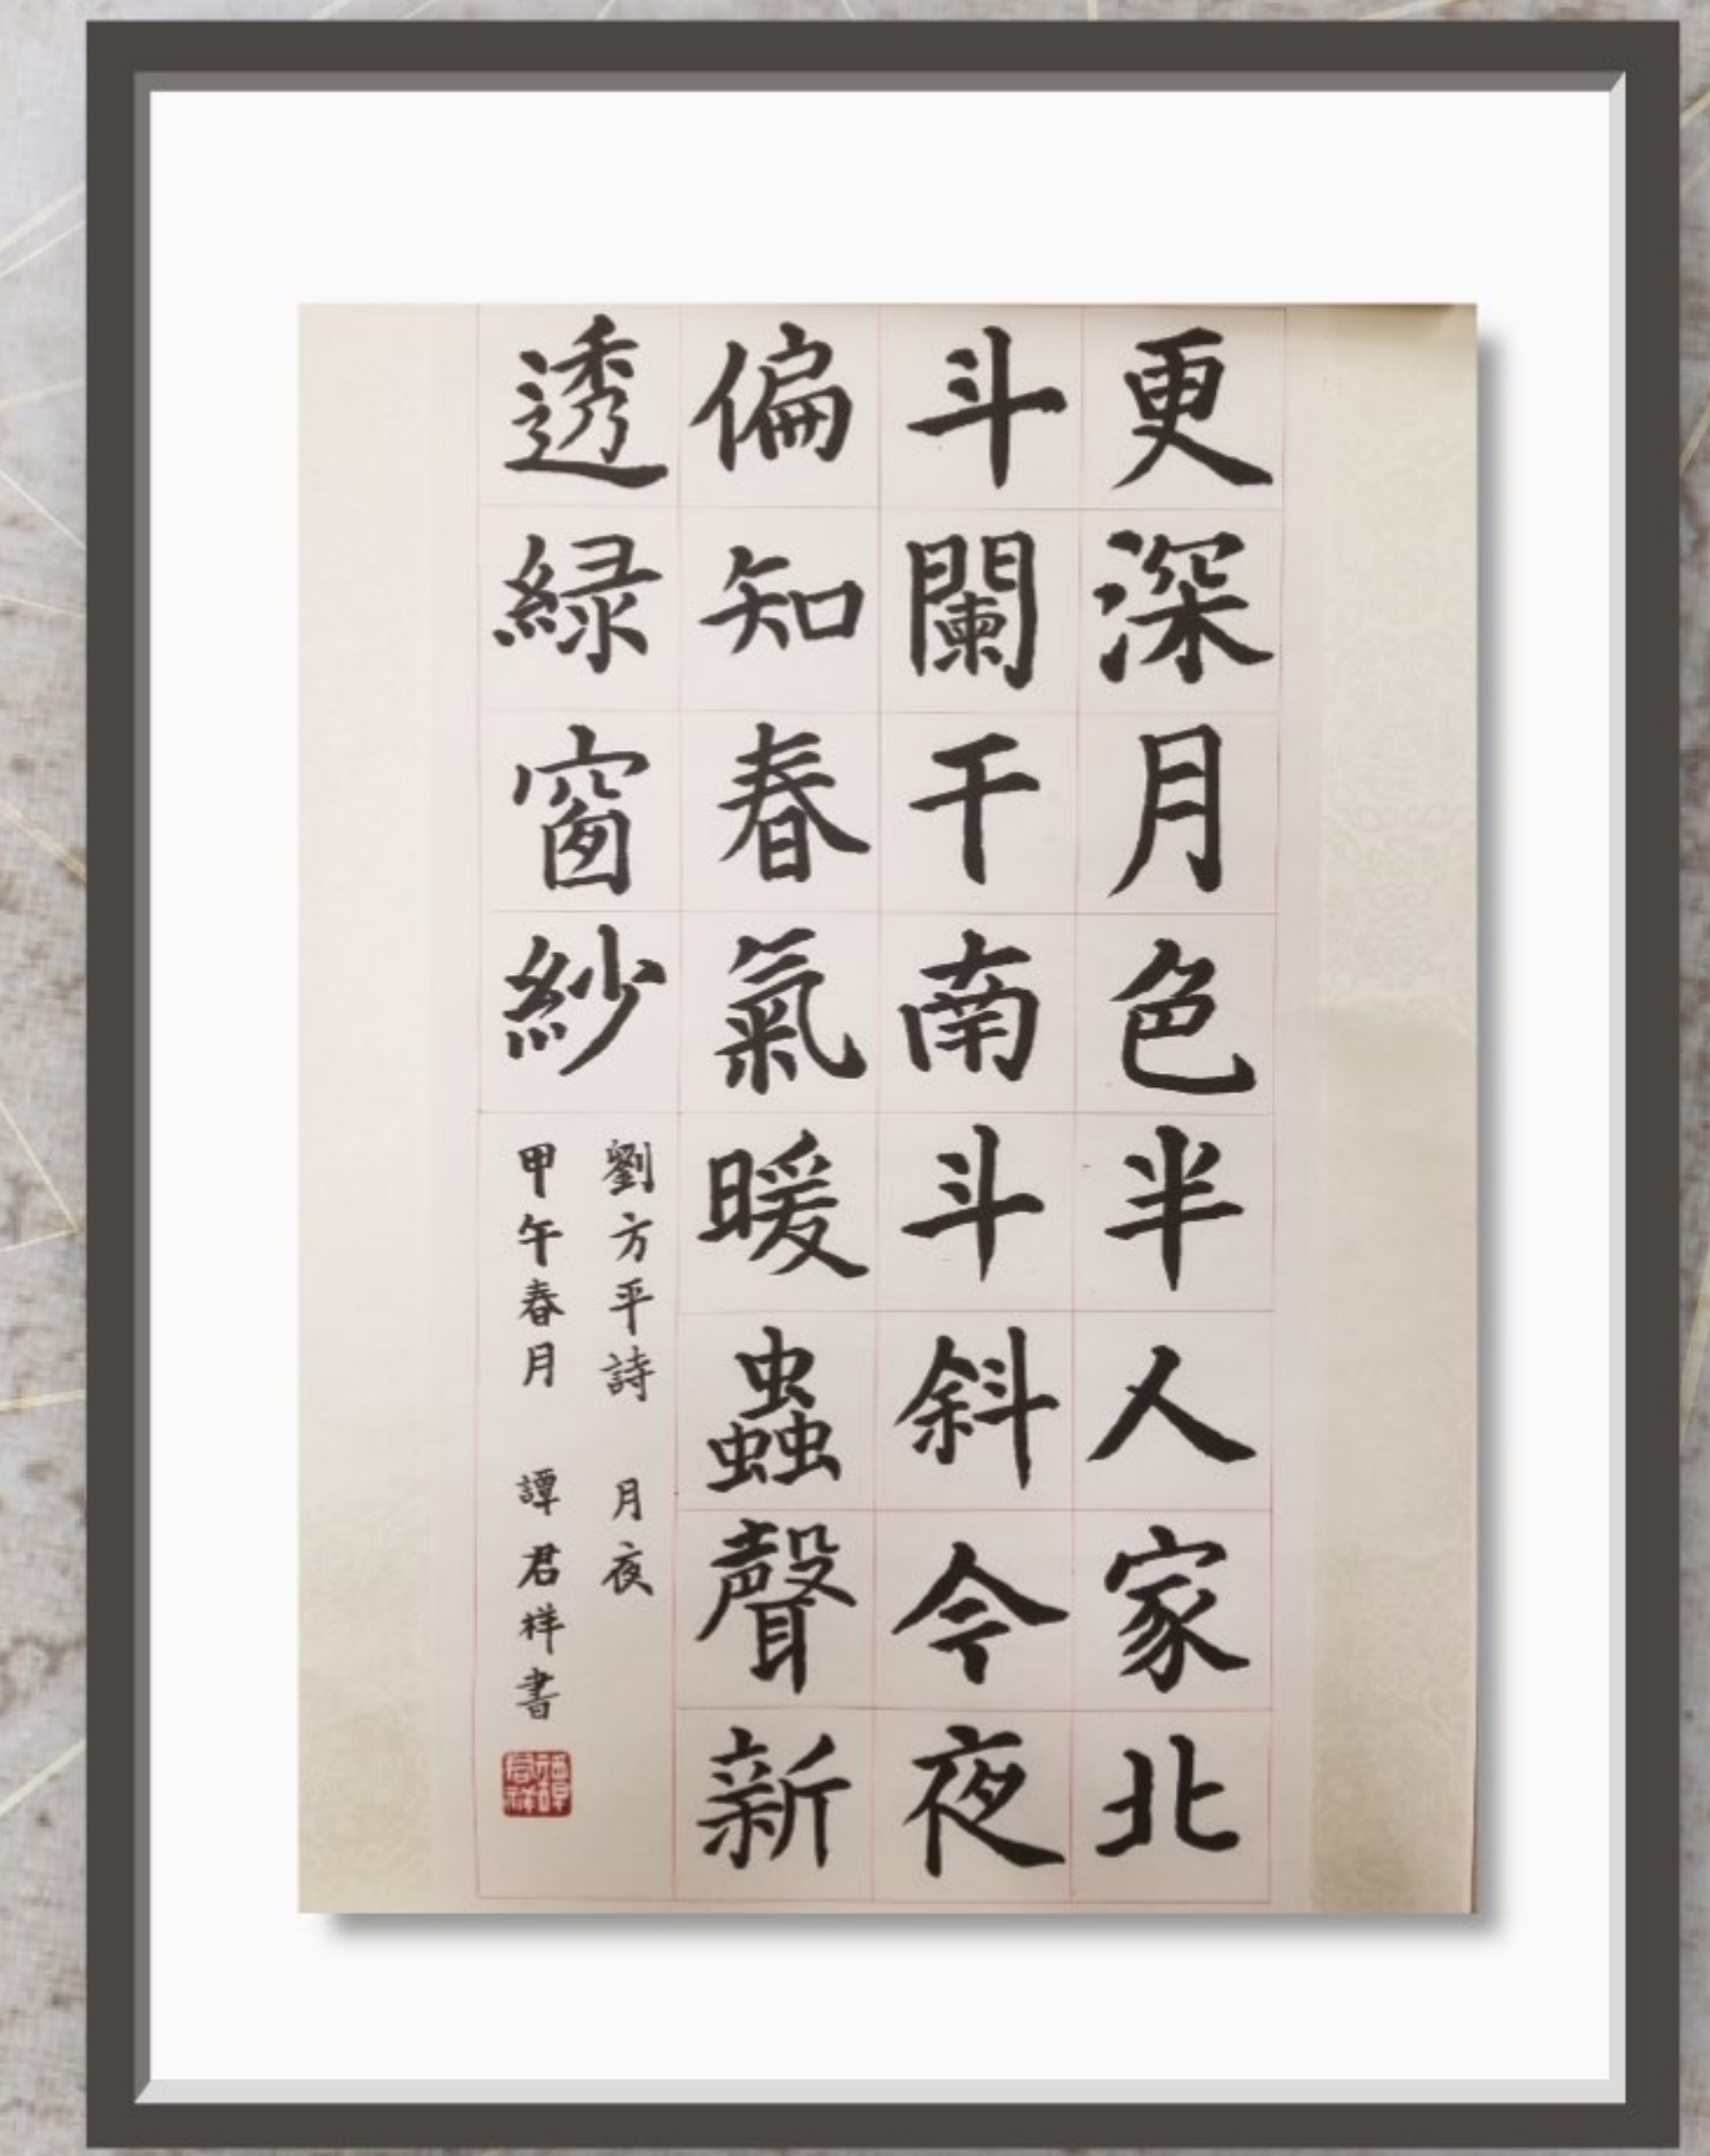 更深月色半人家北
斗闌干南斗斜今夜
偏知春氣暖蟲聲新
透緑窗紗
劉方平詩 月夜
甲午春月 譚君祥書
譚君祥印